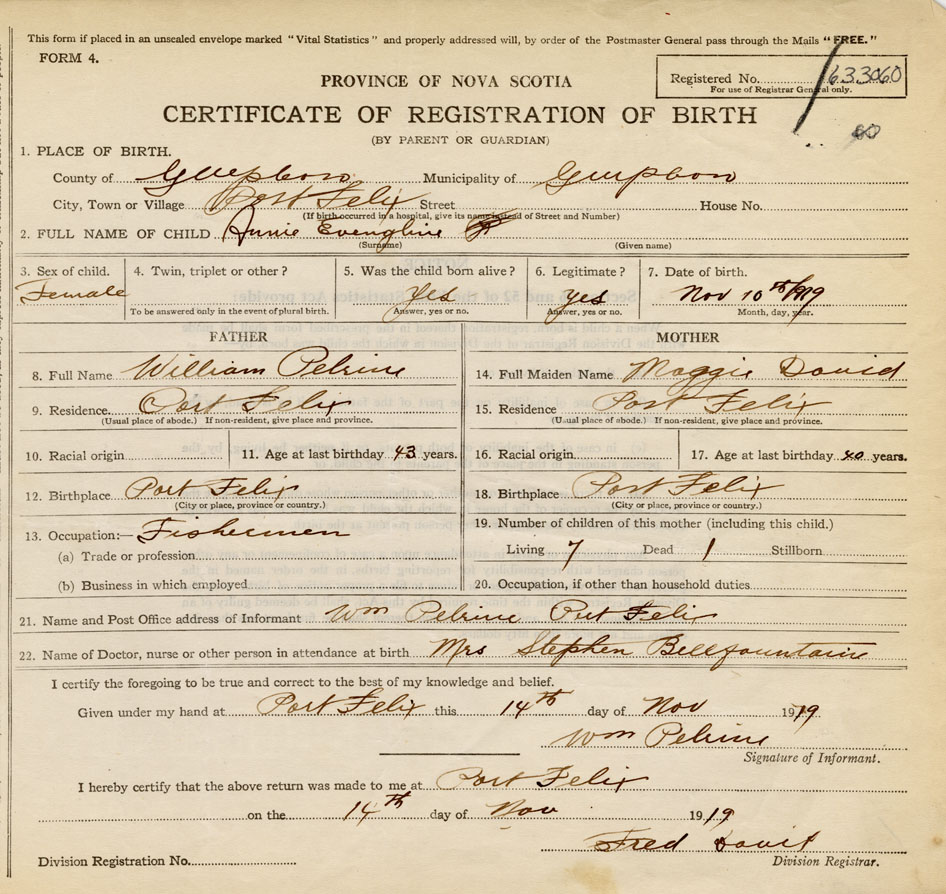 This form if placed in an unsealed envelope marked "Vital Statistics" and properly addressed will, by order of the Postmaster General pass through the Mails "FREE."
FORM 4.
Registered No. 633060
For use of Registrar General only.
PROVINCE OF NOVA SCOTIA
CERTIFICATE OF REGISTRATION OF BIRTH
(BY PARENT OR GUARDIAN)
60
1. PLACE OF BIRTH.
County of Guysboro Municipality of Guysboro
City, Town or Village Port Felix Street House No.
(If birth occurred in a hospital, give its name instead of Street and Number)
2. FULL NAME OF CHILD Annie Evengline
(Surname) (Given name)
3. Sex of child. 4. Twin, triplet or other? 5. Was the child born alive? 6. Legitimate? 7. Date of birth.
Female Yes Yes Nov 10th 1919
To be answered only in the event of plural birth. Answer, yes or no. Answer, yes or no. Month, day, year.
FATHER MOTHER
8. Full Name William Pelrine 14. Full Maiden Name Maggie David
9. Residence Port Felix 15. Residence Port Felix
(Usual place of abode.) If non-resident, give place and province. (Usual place of abode.) If non-resident, give place and province.
10. Racial origin 11. Age at last birthday 43 years. 16. Racial origin 17. Age at last birthday 40 years.
12. Birthplace Port Felix 18. Birthplace Port Felix
(City or place, province or country.) (City or place, province or country.)
13. Occupation:— Fishermen 19. Number of children of this mother (including this child.)
(a) Trade or profession Living 7 Dead 1 Stillborn
(b) Business in which employed 20. Occupation, if other than household duties
21. Name and Post Office address of Informant Wm Pelrine Port Felix
22. Name of Doctor, nurse or other person in attendance at birth Mrs Stephen Bellfountaine
I certify the foregoing to be true and correct to the best of my knowledge and belief.
Given under my hand at Port Felix this 14th day of Nov 1919
Wm Pelrine
Signature of Informant.
I hereby certify that the above return was made to me at Port Felix
on the 14th day of Nov 1919
Fred
Division Registration No. Division Registrar.